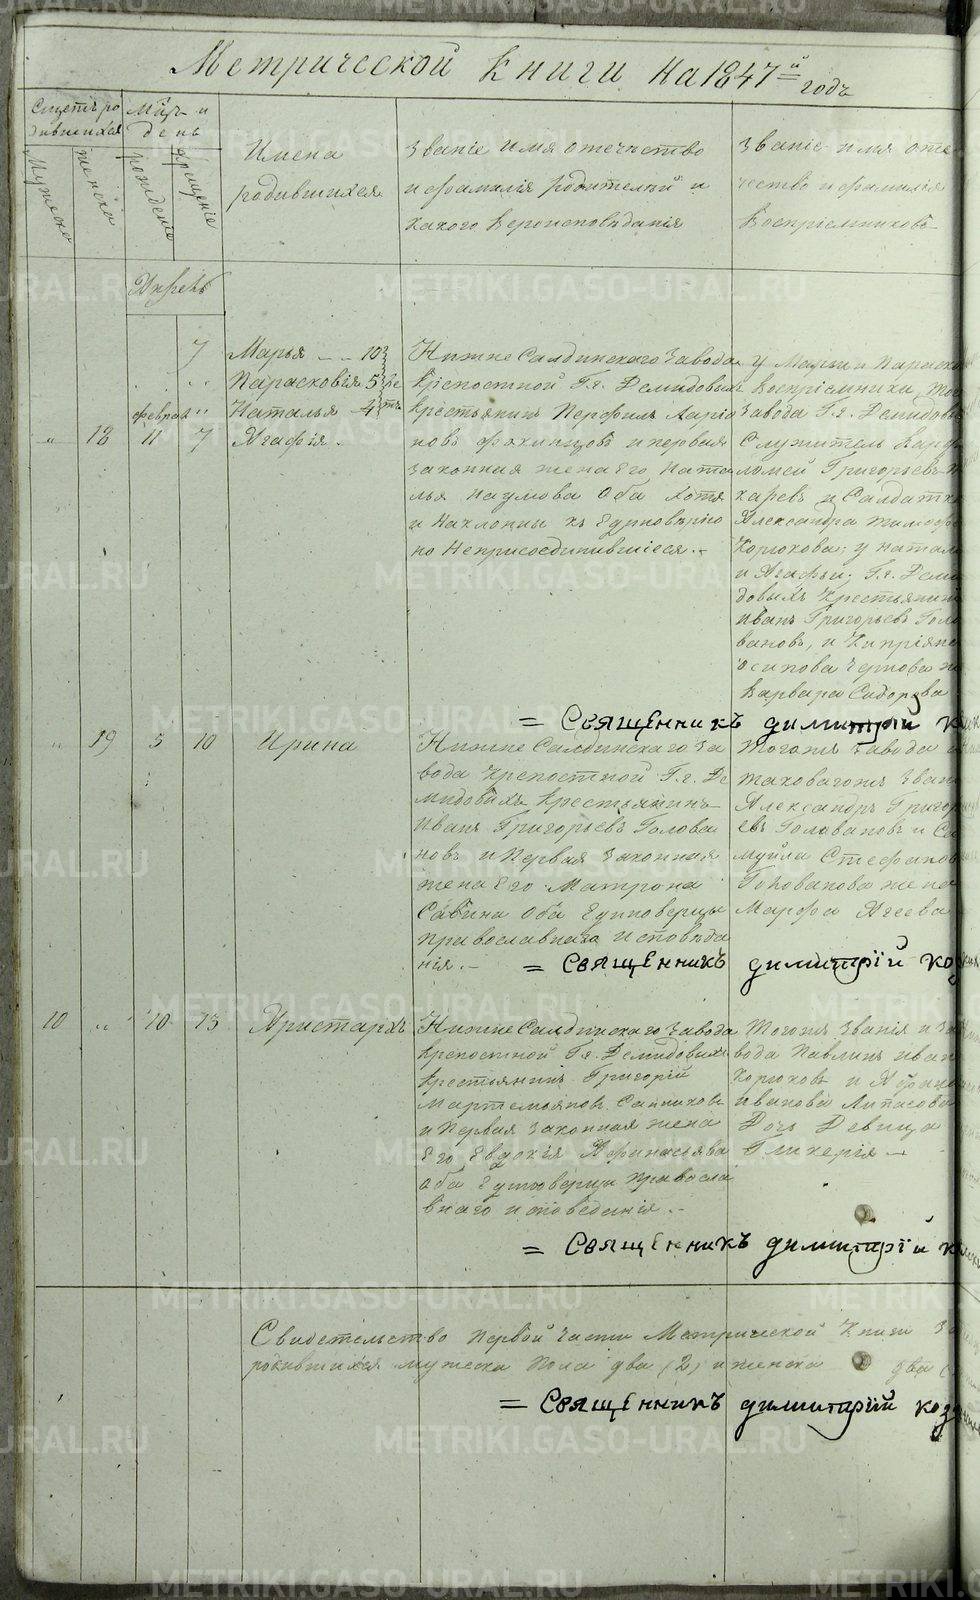 Метрической Книги на 1847й годъ
Счетъ ро
дившихся
Мужеска
женска
Мцъ и
день
рожденіе
крещеніе
Имена
родившихся
Званіе имя отечество
и фамилія родителей и
какого вероисповѣданія
Званіе имя оте
чество и фамилія
Воспріемниковъ
Апрель
7 Марья - - 10
Парасковія 5
Наталья 4
феврал
18 11 7 Агафія
Нижне Салдинскаго Завода
крепостной Гг. Демидовыхъ
крестьянинъ Перфилъ Ларіо
новъ и первая
законная жена Его Ната
лья Наумова Оба хотя
и наклонны къ Единоверію
но Неприсоединившіеся.
у Марьи и Параско
Воспріемники
Завода Гг. Демидовы
Служитель Варфо
ломей Григорьевъ
и Салдатк
Александра Тимофе
Корюкова, у Натал
и Агафьи, Гг. Деми
довыхъ Крестьянин
Иванъ Григорьевъ Голо
вановъ, и Кипріян
Осипова Чернова же
Варвара Сидорова
= Священникъ Димитрій
19 5 10 Ирина
Нижне Салдинскаго За
вода Крепостной Гг. Де
мидовыхъ Крестьянинъ
Иванъ Григорьевъ Голова
новъ и Первая Законная
жена Его Матрона
Савина Оба Единоверцы
православнаго исповѣда
нія.
Тогожъ Завода
таковагожъ Зван
Александръ Григорь
евъ Головановъ и Са
муйла Стефанов
Голованова жена
Марфа Агеева
= Священникъ Димитрій
10 10 13 Аристархъ
Нижне Салдинскаго Завода
Крепостной Гг. Демидовыхъ
Крестьянинъ Григорій
Мартемьяновъ
и Первая Законная жена
Его Евдокія Афинасьева
оба Единоверцы Правосла
внаго исповеданія.
Тогожъ Званія и За
вода Павлинъ Иван
Корюковъ и
Иванова
Дочь Девица
Гликерія
= Священникъ Димитрій
Свидетельство Первой Части Метрической Книги
родившихся мужеска Пола два (2) и женска два (
= Священникъ Димитрій